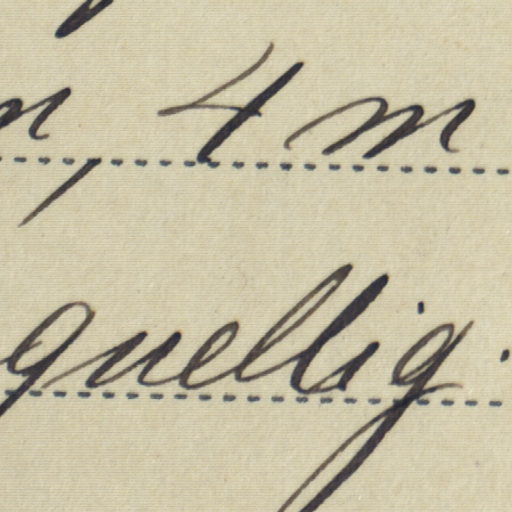 4 m
quellig.